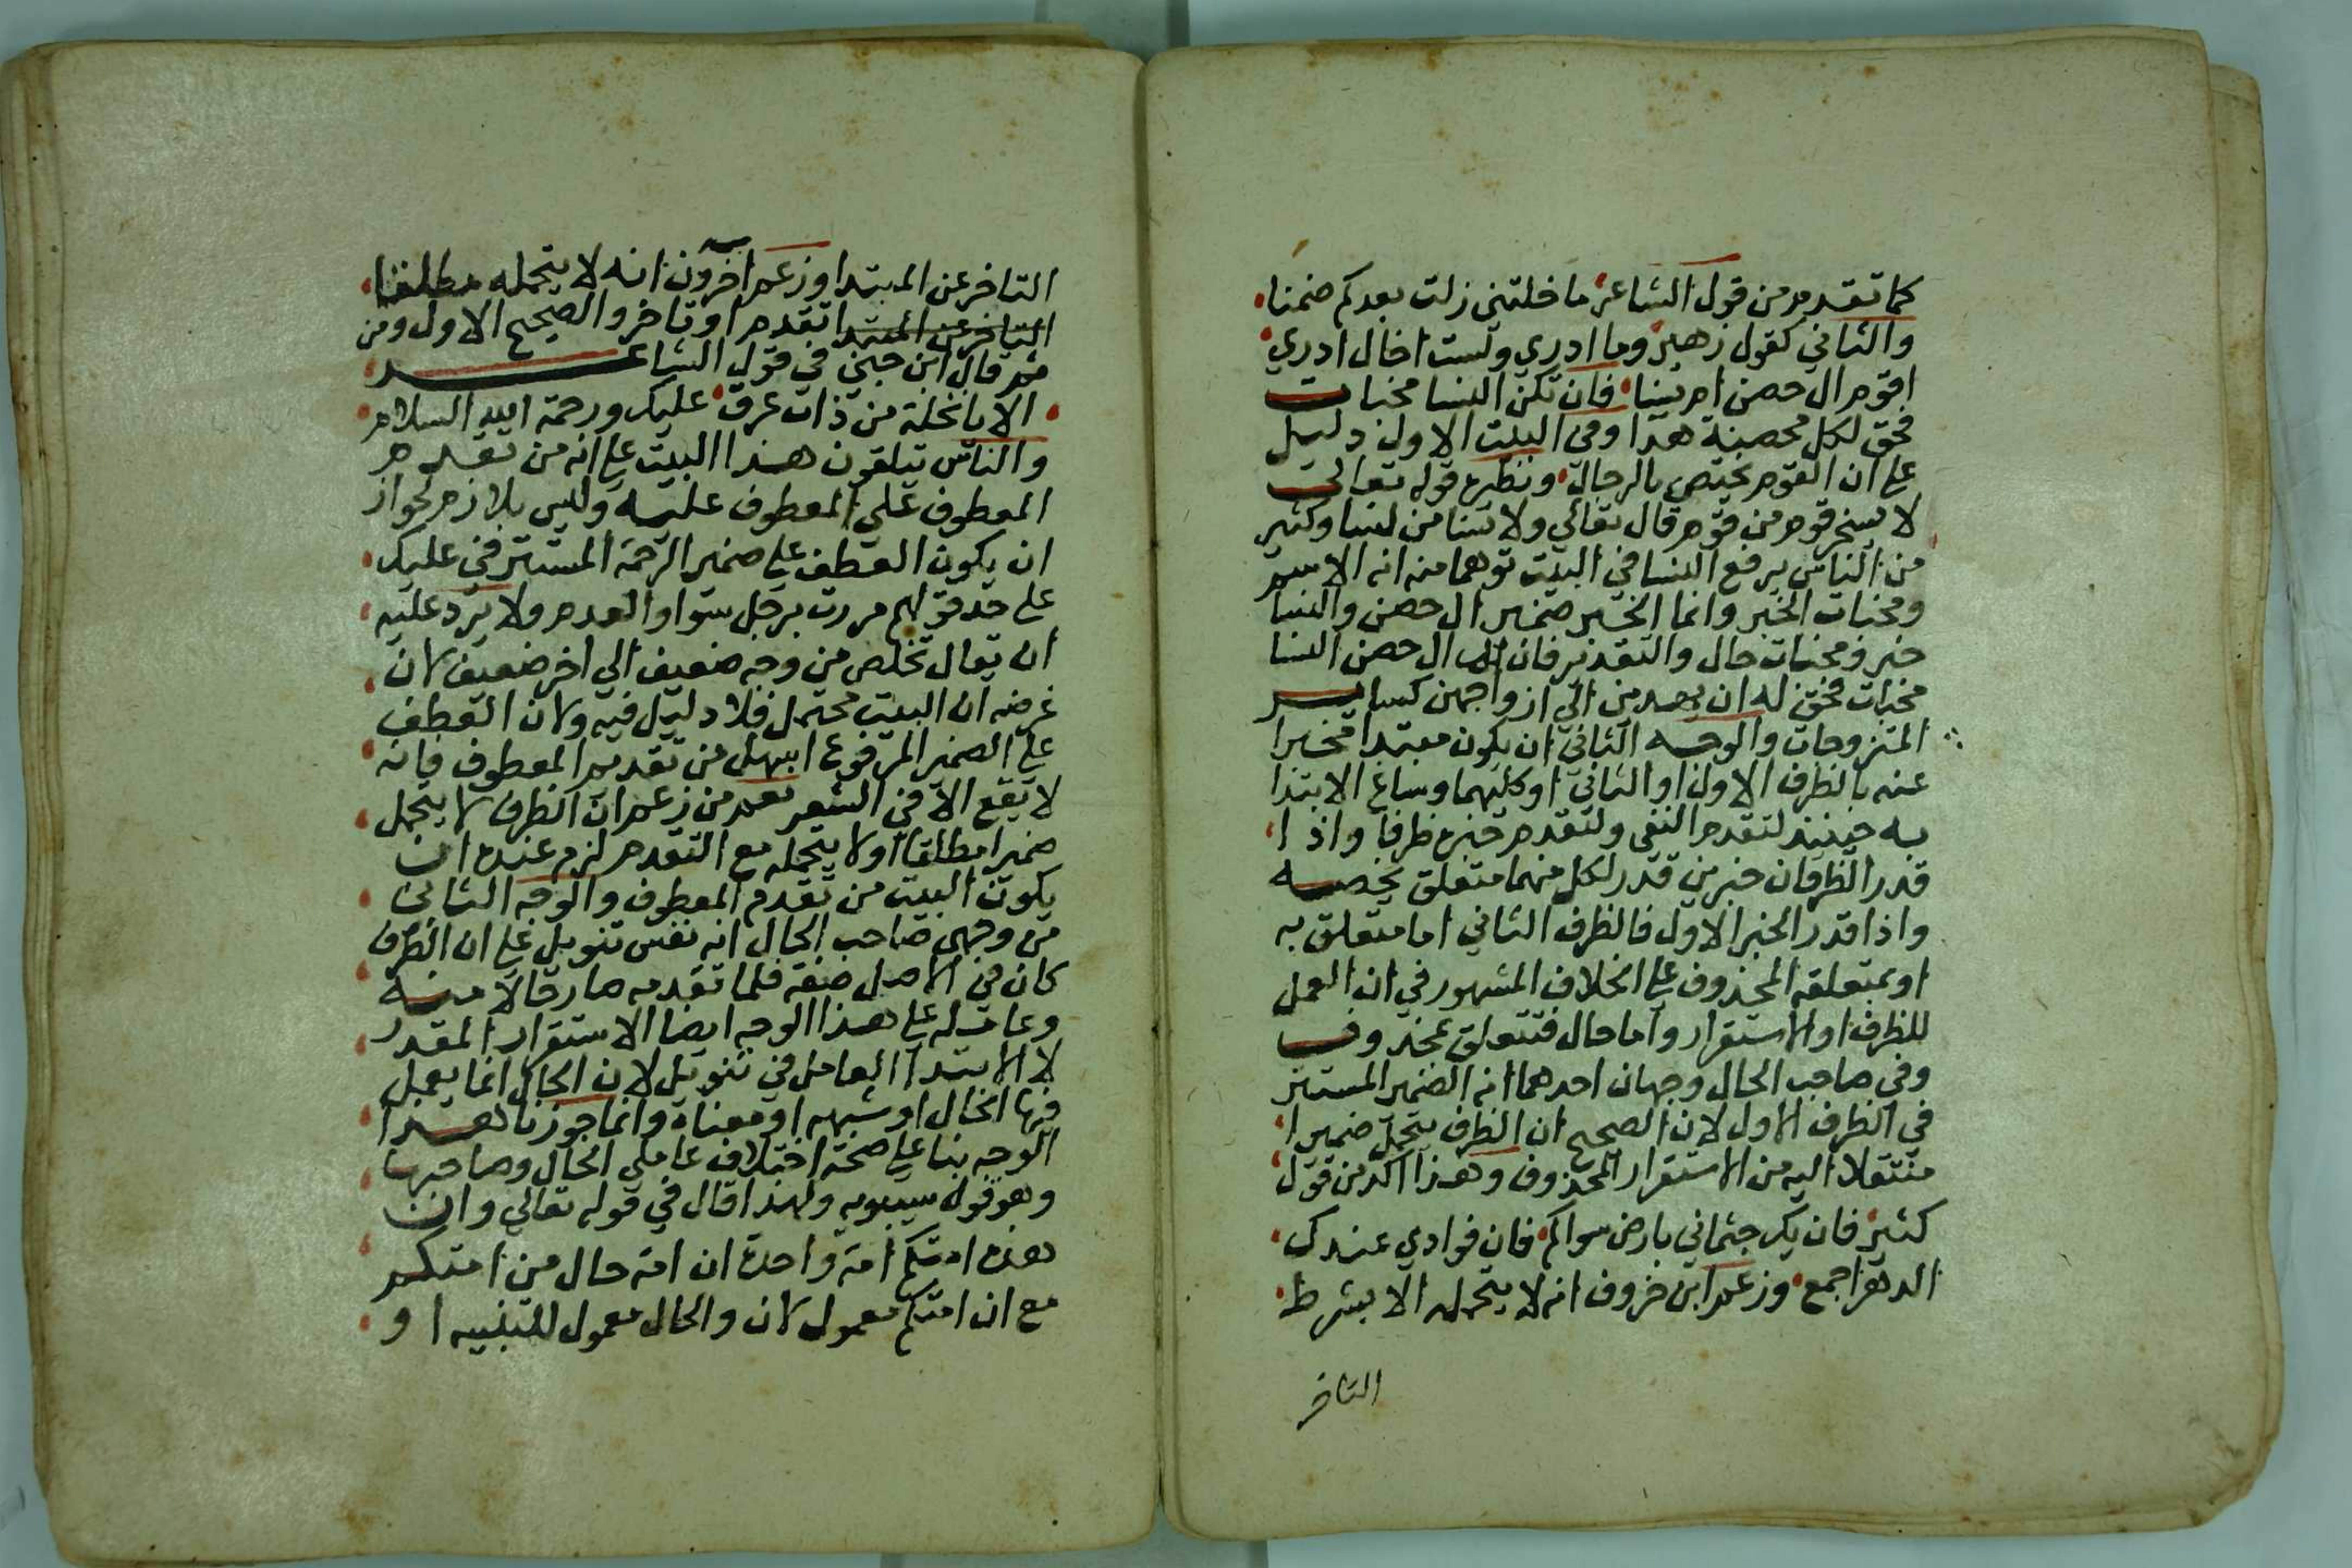 كما تقدم من قول الشاعر ما خلتني زلت بعدكم ضمنا
والثاني كقول زهير وما ادري ولست اخال ادري
اقوم ال حصن ام نسا فان تكن النسا مخبات
فحق لكل محصنة هدا وفي البيت الاول دليل
علي ان القوم يختص بالرجال ونظيره قوله تعالي
لا يسخر قوم من قوم قال تعالي ولا نسا من نسا وكثير
من الناس يرفع النسا في البيت توهما منه انه الاسم
ومخبات الخبر وانما الخبر ضمير ال حصن والنسا
خبر ومخبات حال والتقدير فان تك ال حصن النسا
مخبات فحق له ان يهدين الي ازواجهن كساير
المتزوجات والوجه الثاني ان يكون مبتدا مخبرا
عنه بالظرف الاول او الثاني او كليهما وساغ الابتدا
به حينيذ لتقدم النفي ولتقدم خبره ظرفا واذا
قدر الظرفان خبرين قدر لكل منهما متعلق يخصه
واذا قدر الخبر الاول فالظرف الثاني اما متعلق به
او بمتعلقه المحذوف علي الخلاف المشهور في ان العمل
للظرف او الاستقرار واما حال فتتعلق بمحذوف
وفي صاحب الحال وجهان احدهما انه الضمير المستتر
في الظرف الاول لان الصحيح ان الظرف يتحمل ضميرا
منتقلا اليه من الاستقرار المحذوف وهذا اكد من قول
كثير فان يك جثماني بارض سواكم فان فوادي عندك
الدهر اجمع وزعم ابن خروف انه لا يتحمله الا بشرط
التاخر
التاخر عن المبتدا وزعم اخرون انه لا يتحمله مطلقا
التاخر عن المبتدا تقدم او تاخر والصحيح الاول ومن
ثم قال ابن جني في قول الشاعر
الا يا نخلة من ذات عرق عليك ورحمة الله السلام
والناس يتلقون هذا البيت علي انه من تقديم
المعطوف علي المعطوف عليه وليس بلازم لجواز
ان يكون العطف علي ضمير الرحمة المستتر في عليك
علي حد قولهم مررت برجل سوا والعدم ولا يرد عليه
ان يقال تخلص من وجه ضعيف الي اخر ضعيف لان
غرضه ان البيت محتمل فلا دليل فيه ولان العطف
علي الضمير المرفوع اسهل من تقديم المعطوف فانه
لا يقع الا في الشعر نعم من زعم ان الظرف لا يتحمل
ضميرا مطلقا او لا يتحمله مع التقدم لزم عنده ان
يكون البيت من تقدم المعطوف والوجه الثاني
من وجهي صاحب الحال انه نفس تنويل علي ان الظرف
كان في الاصل صفة فلما تقدمه صار حالا منه
وعامله علي هذا الوجه ايضا الاستقرار المقدر
لا الابتدا العامل في تنويل لان الحال انما يعمل
فيها الحال او شبهه او معناه وانما جوزنا هذا
الوجه بنا علي صحة اختلاف عاملي الحال وصاحبها
وهو قول سيبويه ولهذا قال في قوله تعالي وان
هذه امتكم امة واحدة ان امة حال من امتكم
مع ان امتكم معمول لان والحال معمول للتنبيه او